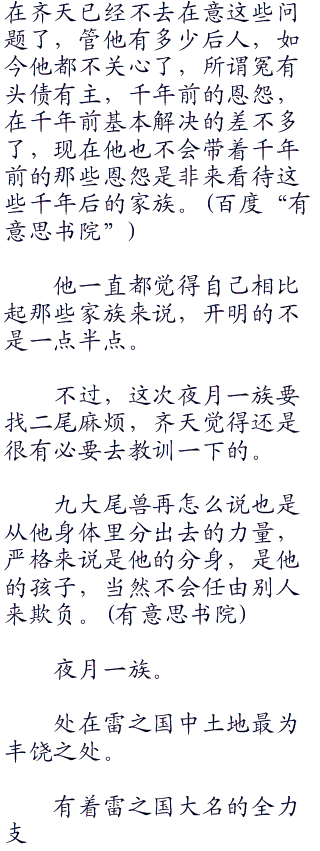 在齐天已经不去在意这些问
题了，管他有多少后人，如
今他都不关心了，所谓冤有
头债有主，千年前的恩怨，
在千年前基本解决的差不多
了，现在他也不会带着千年
前的那些恩怨是非来看待这
些千年后的家族。(百度“有
意思书院”)
他一直都觉得自己相比
起那些家族来说，开明的不
是一点半点。
不过，这次夜月一族要
找二尾麻烦，齐天觉得还是
很有必要去教训一下的。
九大尾兽再怎么说也是
从他身体里分出去的力量，
严格来说是他的分身，是他
的孩子，当然不会任由别人
来欺负。(有意思书院)
夜月一族。
处在雷之国中土地最为
丰饶之处。
有着雷之国大名的全力
支